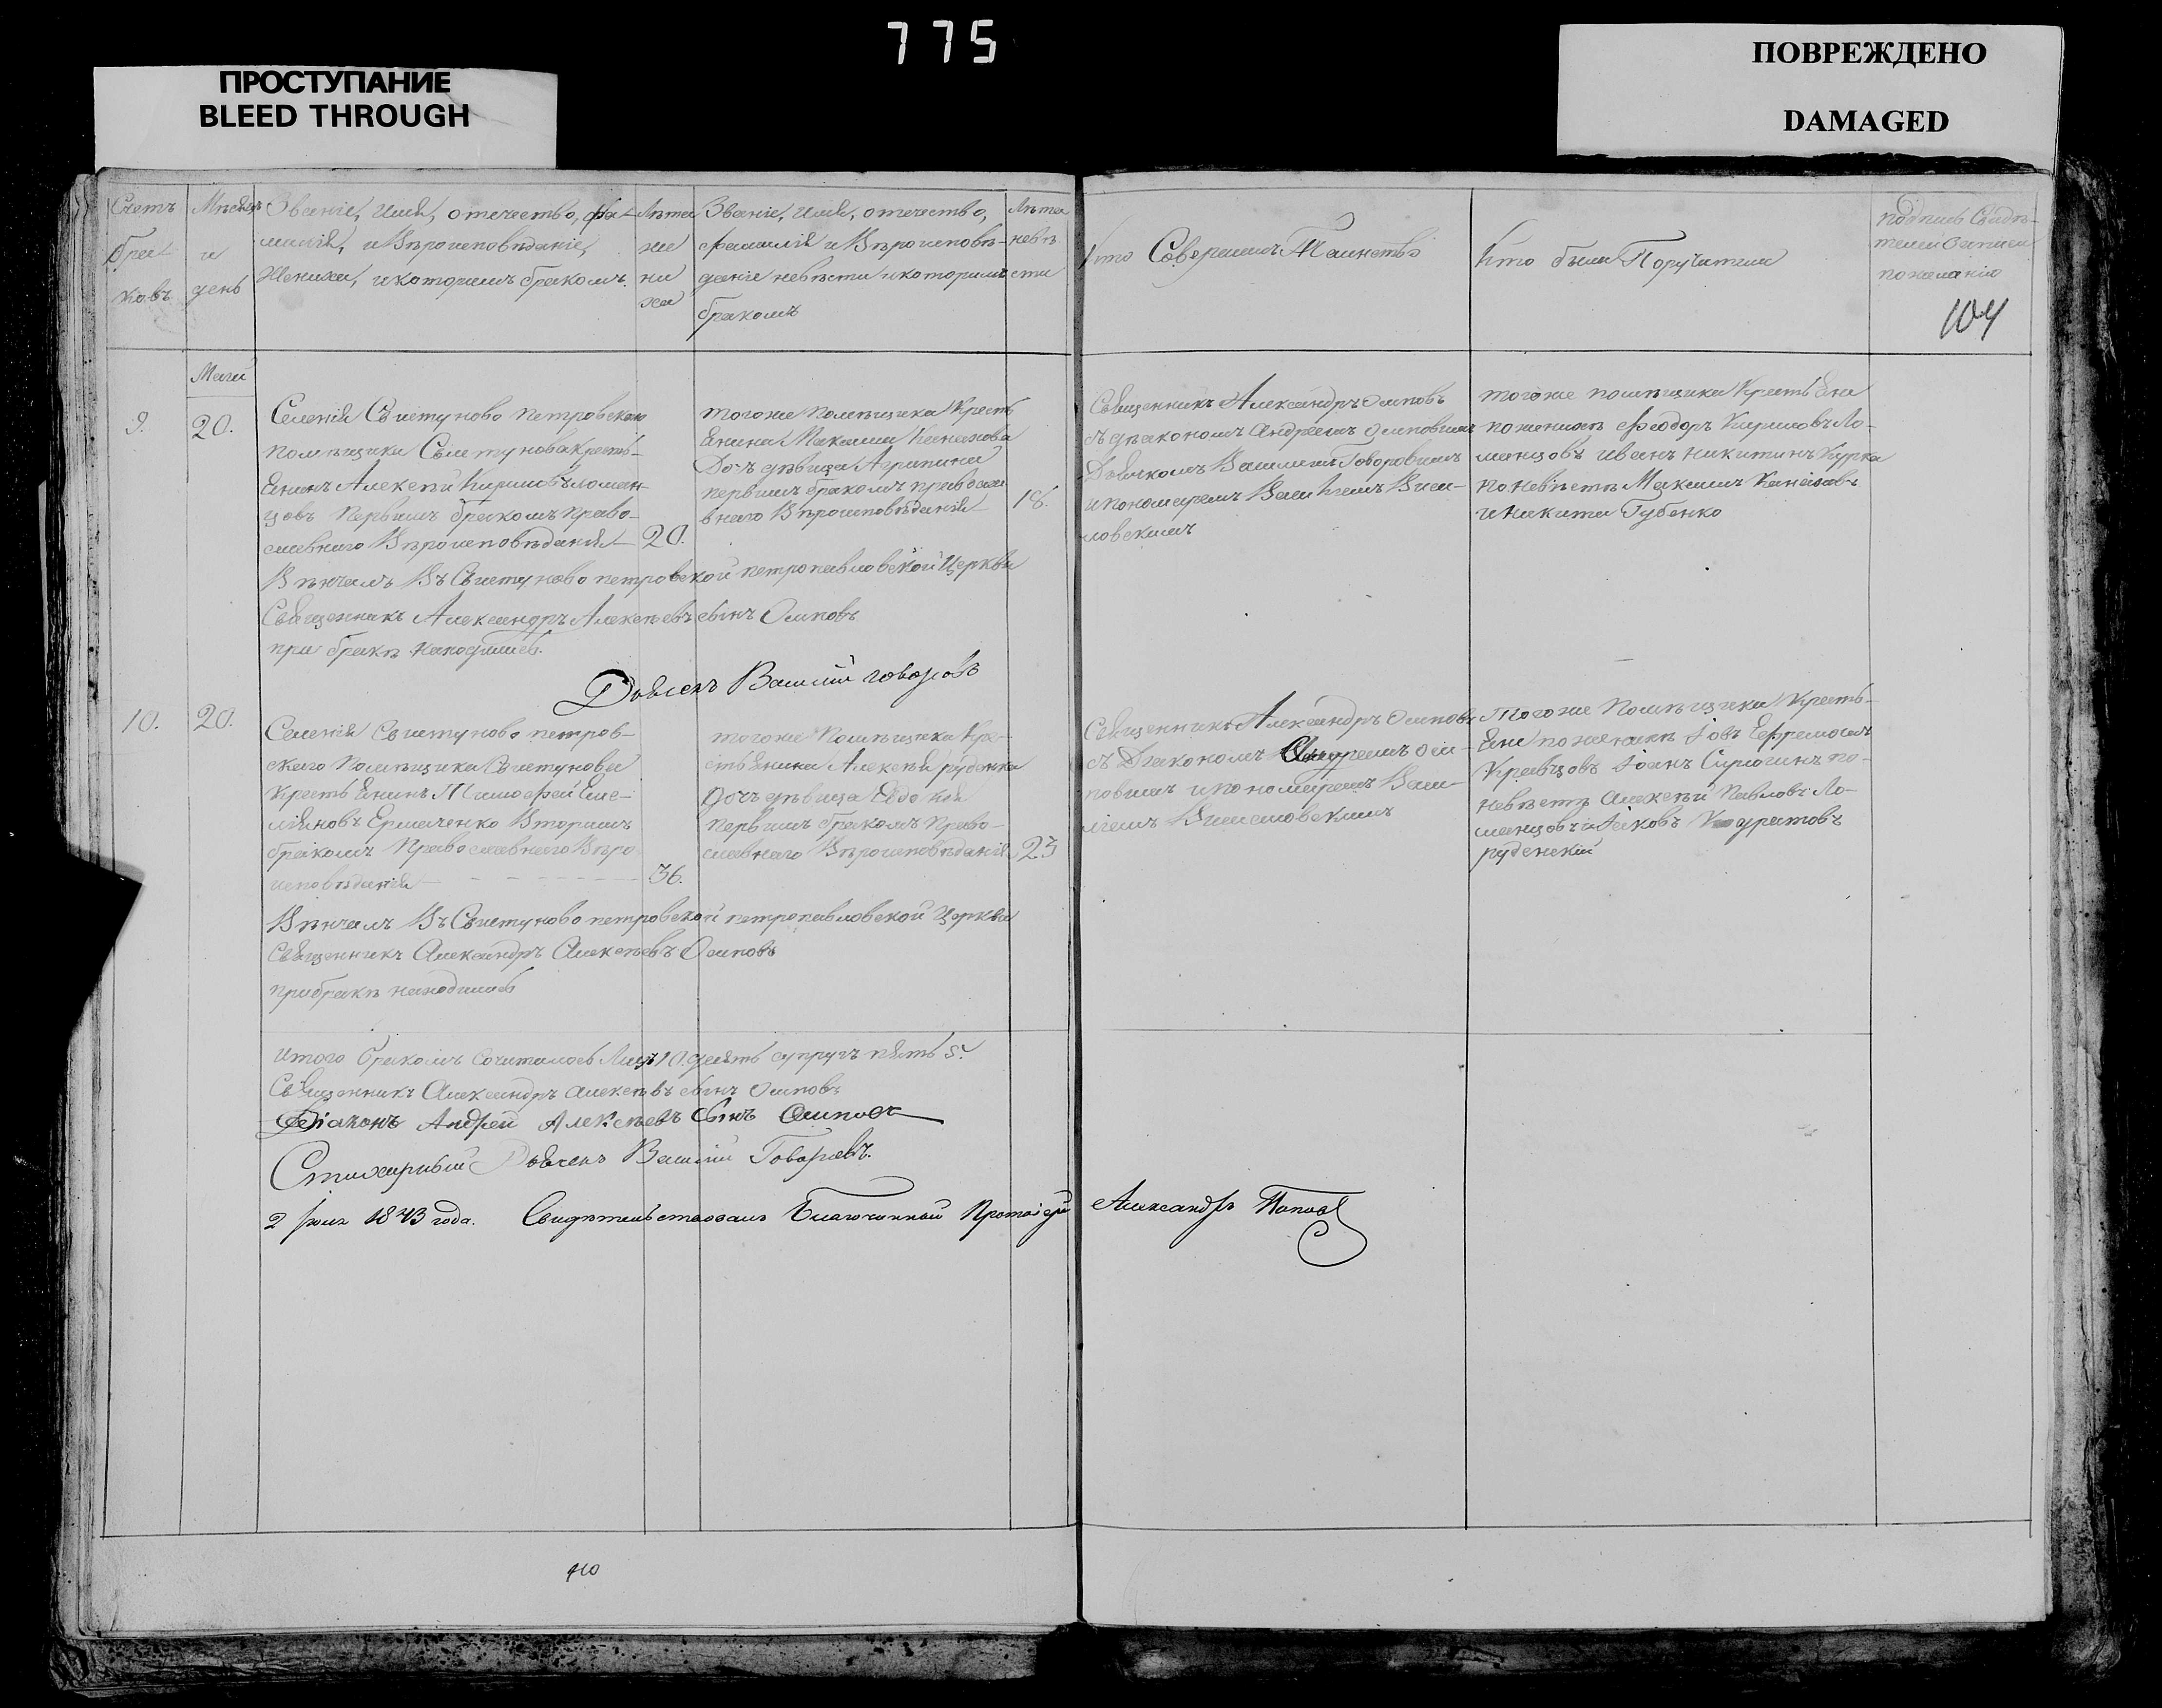 775
ПРОСТУПАНИЕ
BLEED THROUGH
ПОВРЕЖДЕНО
DAMAGED
Счетъ
брач
ковъ
Мѣсяцъ
и
день
Званіе, имя, отечество, фа-
милія, и Вѣроисповѣданіе,
Жениха, и которимъ бракомъ.
Лѣта
же
ни
ха
Званіе, имя, отечество,
фамилія и Вѣроисповѣ-
даніе невѣсти и которимъ
бракомъ
Лѣта
невѣ
сти
Кто Совершалъ Таинство
Кто были Поручители
подпись Свидѣ-
телей записи
по желанію
104
Маія
9.
20.
Селенія Свистуново петровского
помѣщика Свистунова Кресть-
янинъ Алексѣй Кириловъ Ломан
цовъ первимъ бракомъ право-
славнаго Вѣроисповѣданія
20.
тогоже помѣщика Кресть
янина Максима Канахова
Дочь дѣвица Агрипина
первимъ бракомъ правосла
внаго Вѣроисповѣданія
18.
Священникъ Александръ Осиповъ
съ діакономъ Андреемъ Осиповимъ
Дьячкомъ Василіемъ Говоровимъ
и пономаремъ Василіемъ Виси-
ловскимъ
тогоже помѣщика Крестьяна
по женихѣ Феодоръ Кириловъ Ло-
манцовъ иванъ никитинъ Курка
по невѣстѣ Максимъ Канаховъ
и никита Губенко
Вѣнчалъ Въ Свистуново петровской петропавловской Церкви
Священникъ Александръ Алексѣевъ сынъ Осиповъ
при бракѣ находились
Дьячекъ Василий говоровъ
10.
20.
Селенія Свистуново петров-
скаго Помѣщика Свистунова
Крестьянинъ Тимофей Еме-
ляновъ Ермаченко Вторимъ
бракомъ Православнаго Вѣро
исповѣданія
36.
тогоже Помѣщика Кре-
стьянина Алексѣя руденка
Дочь дѣвица Евдокия
первимъ бракомъ Право-
славнаго Вѣроисповѣданія
23
Священникъ Александръ Осиповъ
съ Діакономъ Андреемъ Оси-
повимъ и пономаремъ Васи-
ліемъ
Тогоже Помѣщика Кресть-
яне по женихѣ Іовъ Ефремовъ
Кравцовъ Іоанъ по-
невѣстѣ Алексѣй Павловъ Ло-
манцовъ и Яковъ Кодратовъ
руденский
Вѣнчалъ Въ Свистуново петровской петропавловской Церкви
Священникъ Александръ Алексѣевъ Осиповъ
при бракѣ находились
итого бракомъ сочиталось Лицъ 10. десять супругъ пять 5.
Священникъ Александръ алексѣевъ сынъ Осиповъ
Діаконъ Андрей Алексѣевъ Сынъ Осиповъ
Стихарный Дьячекъ Василий Говоровъ.
2 1843 года. Свидѣтельствовалъ Благочинный Протоіерей Александръ Поповъ
410